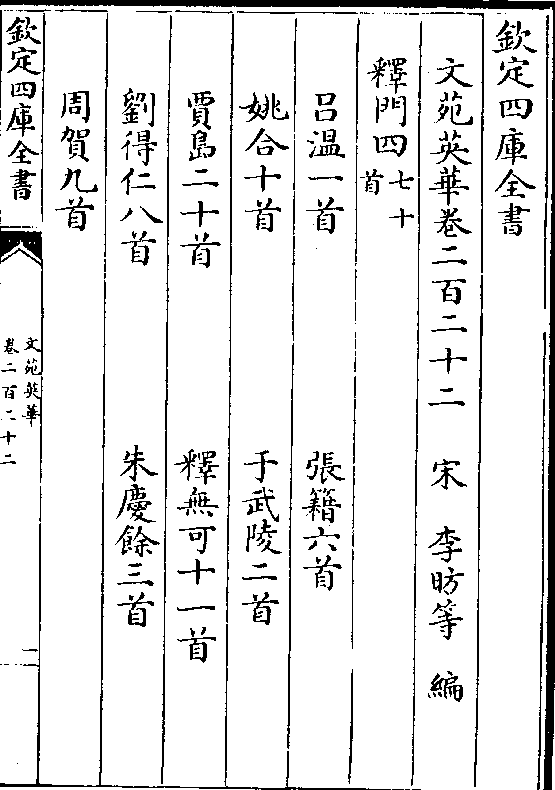 欽定四庫全書
文苑英華卷二百二十二 宋 李昉等 編
釋門四七十首
呂溫一首 張籍六首
姚合十首 于武陵二首
賈島二十首 釋無可十一首
劉得仁八首 朱慶餘三首
周賀九首
欽定四庫全書
文苑英華
卷二百二十二
一